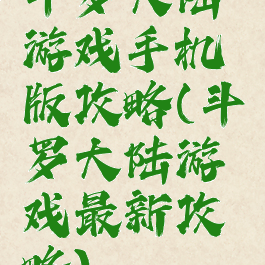 斗罗大陆
游戏手机
版攻略(斗
罗大陆游
戏最新攻
略)